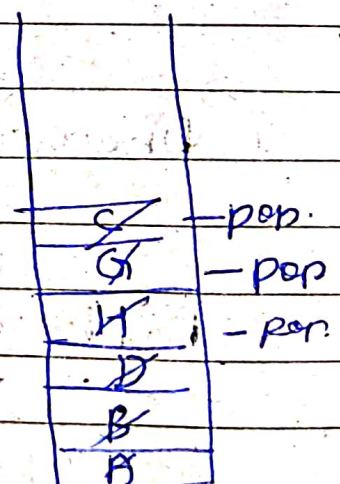 C - pop.
G - pop
H - pop.
D
B
A